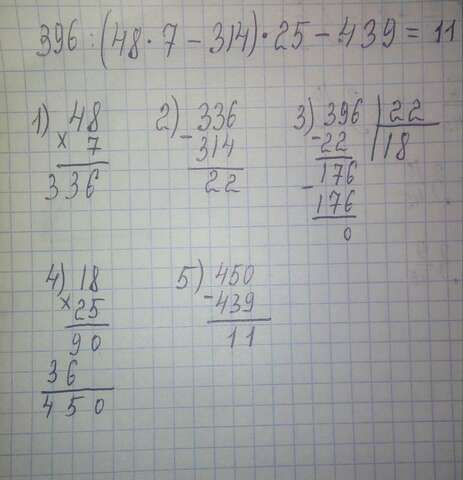 396 : (48 · 7 − 314) · 25 − 439 = 11
1) 48
× 7
336
2) 336
− 314
22
3) 396 | 22
− 22 | 18
− 176
176
0
4) 18
× 25
90
36
450
5) 450
− 439
11